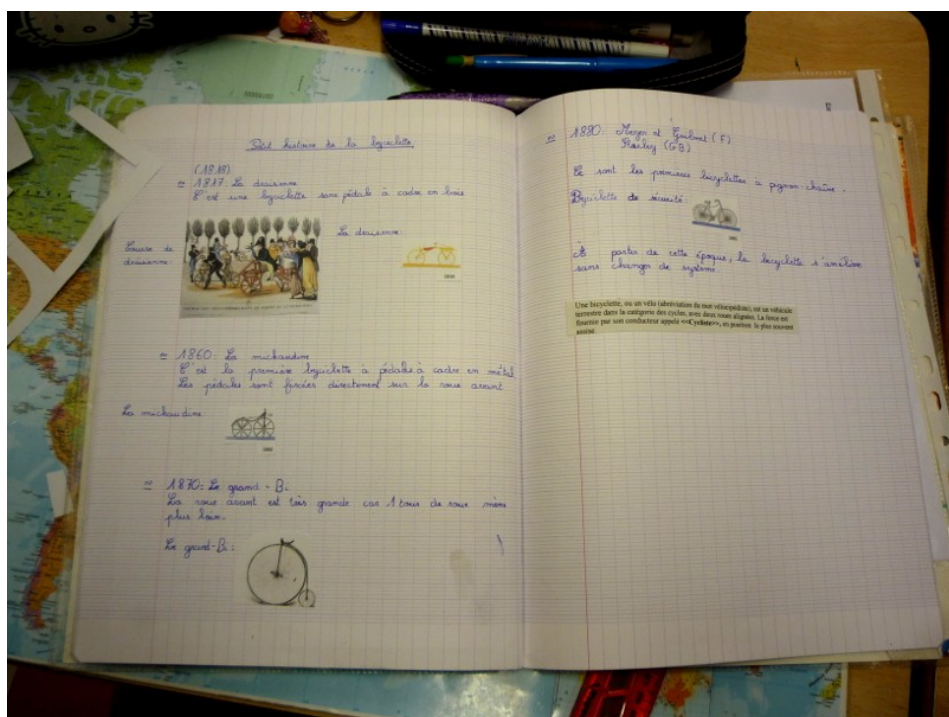 Petite histoire de la bicyclette
(1818)
≈ 1817: La draisienne
C'est une byciclette sans pédale à cadre en bois
Course de
draisienne:
La draisienne:
≈ 1860: La michaudine
C'est la première byciclette à pédales à cadre en métal
Les pédales sont fixées directement sur la roue avant
La michaudine:
≈ 1870: Le grand-Bi
La roue avant est très grande car 1 tour de roue mène
plus loin.
Le grand-Bi:
≈ 1880: Meyer et Guilmet (F)
Starley (GB)
Ce sont les premières bicyclettes à pignon-chaîne.
Bycilette de sécurité:
À partir de cette époque, la bicyclette s'améliore
sans changer de système.
Une bicyclette, ou un vélo (abréviation du mot vélocipédiste), est un véhicule
terrestre dans la catégorie des cycles, avec deux roues alignées. La force est
fournie par son conducteur appelé <<Cycliste>>, en position le plus souvent
assise.